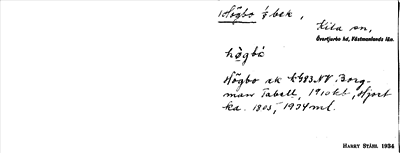 Högbo fbek,
Kila sn,
Övertjurbo hd, Västmanlands län.
högbå
Högbo ak 683 NV Borg-
man Tabell, 1910 kt, Hjort
ka. 1805, 1934 ml.
HARRY STÅHL 1934